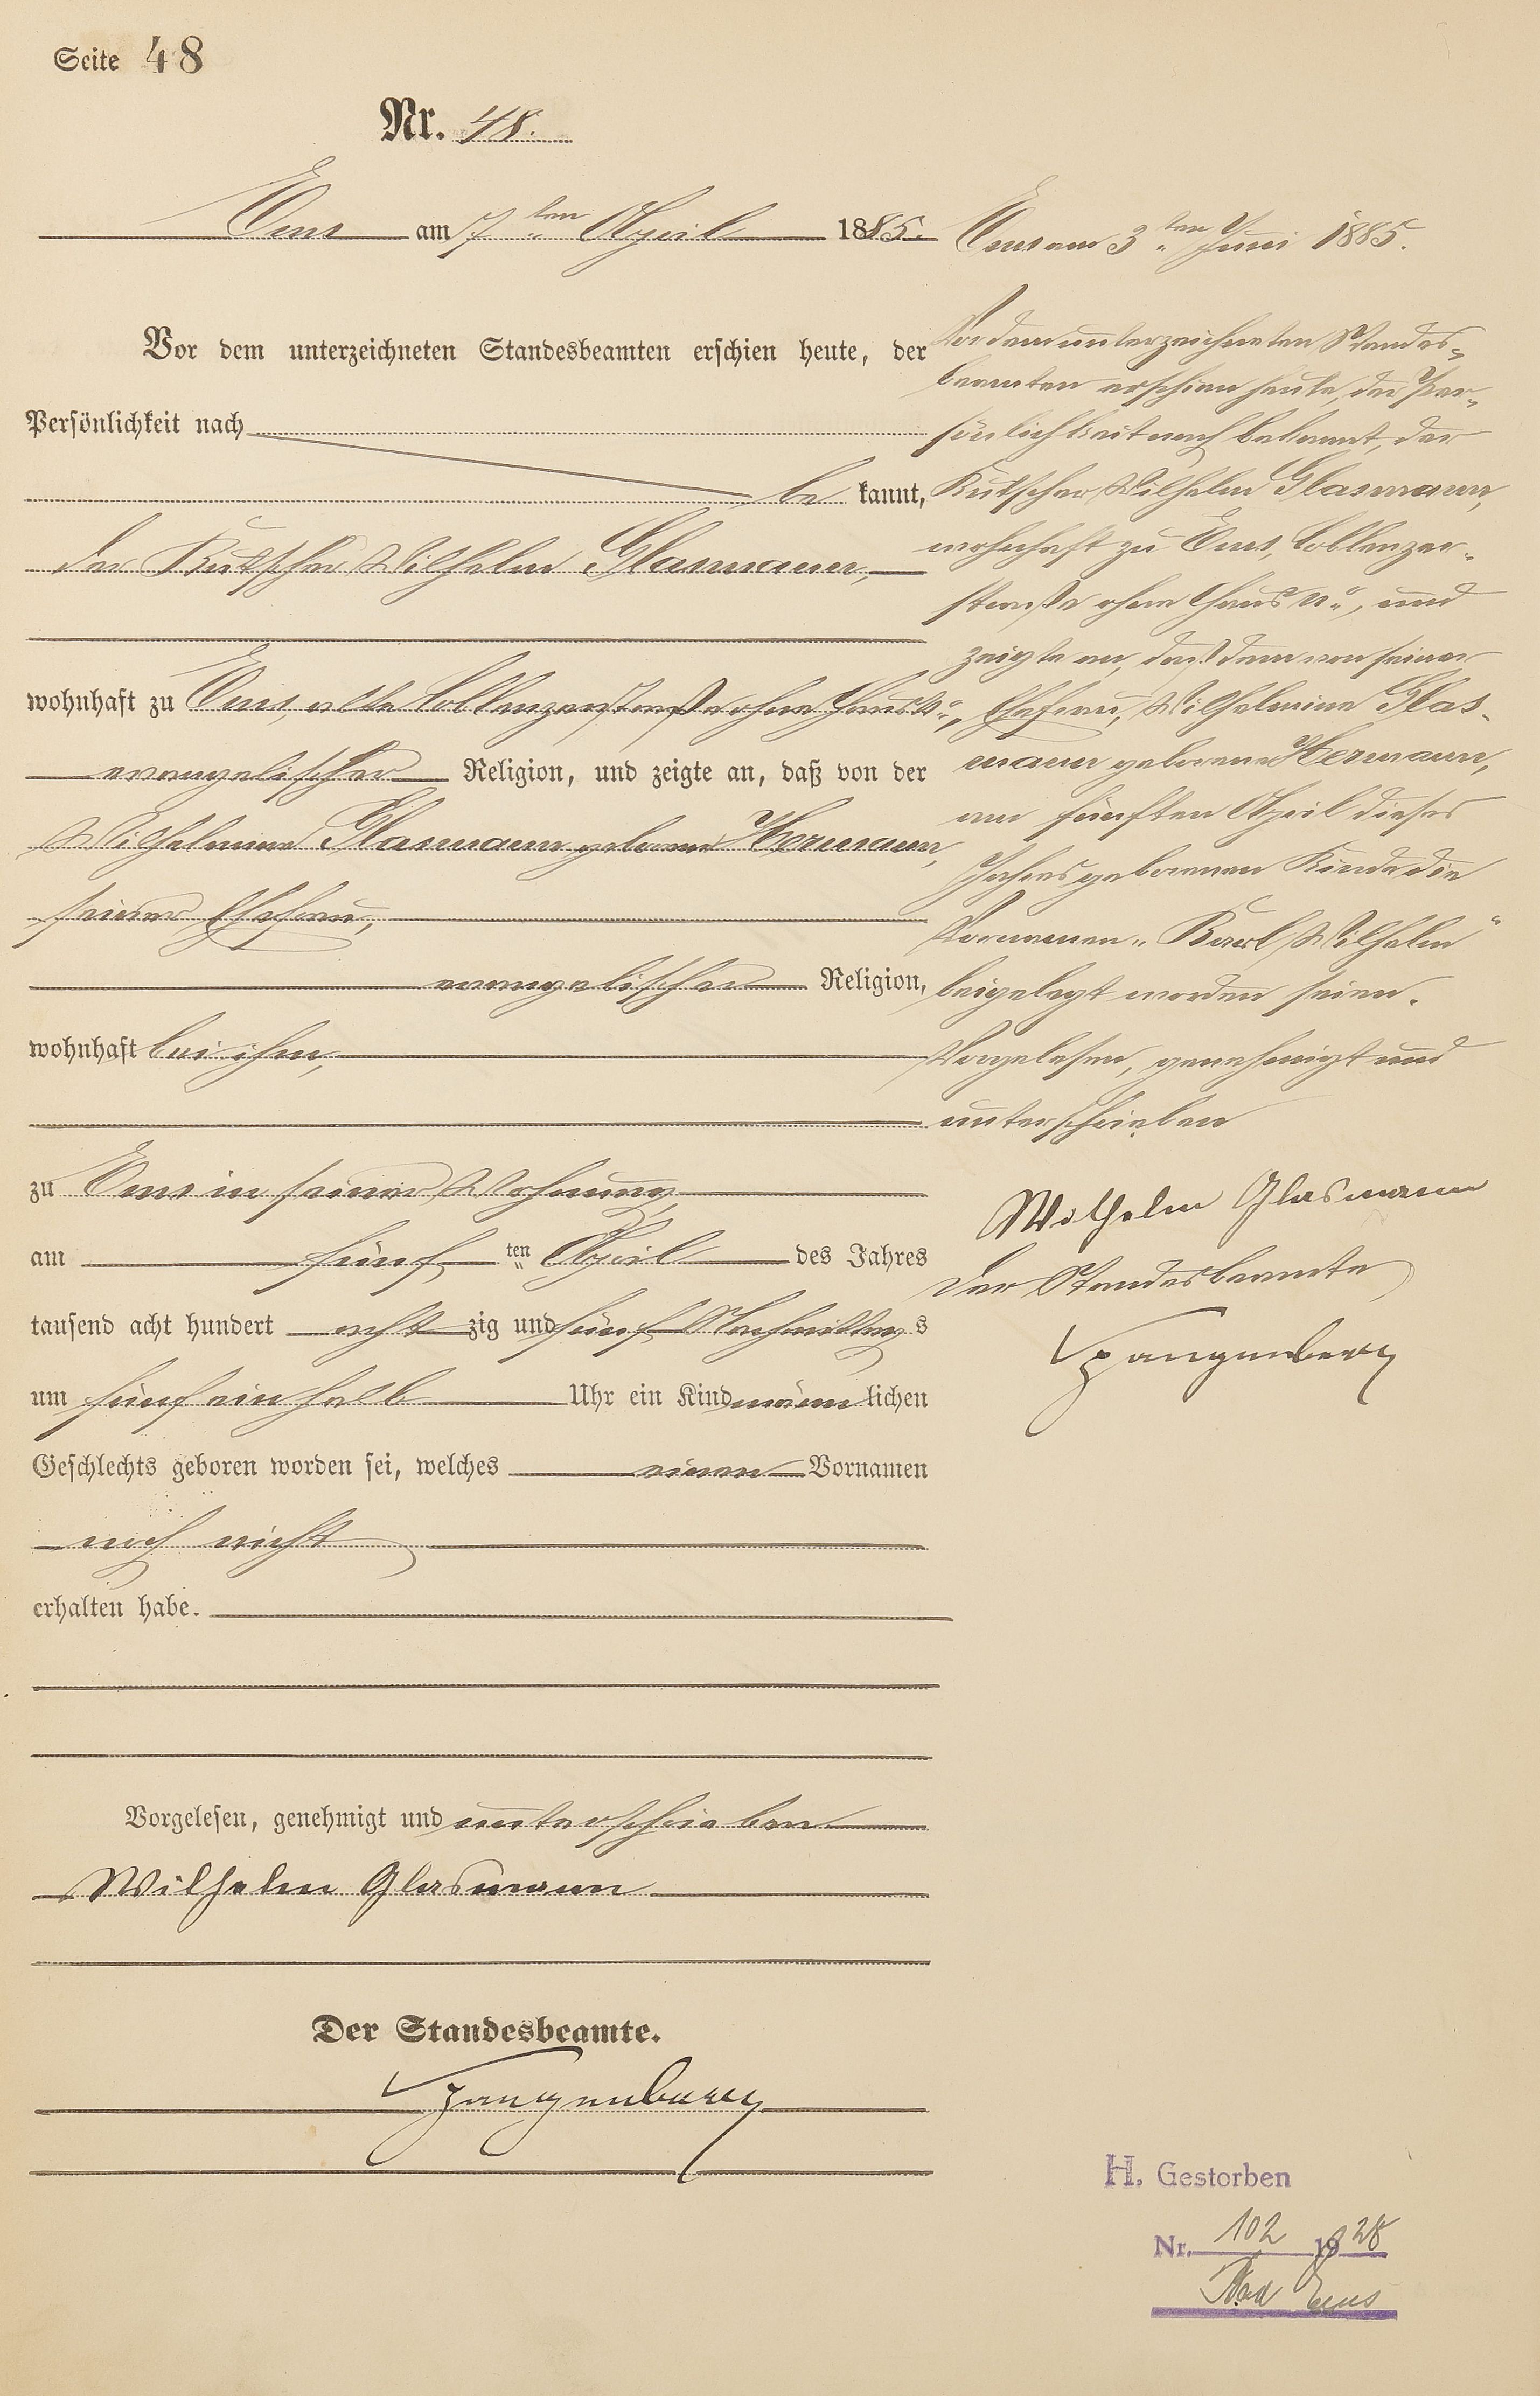 Seite 48
Nr. 48.
Ems am 7ten April 1885.
Vor dem unterzeichneten Standesbeamten erschien heute, der
Persönlichkeit nach
be kannt,
der Kutscher Wilhelm Glasmann,
wohnhaft zu Ems, alte Coblenzerstraße ohne Haus No.,
evangelischer Religion, und zeigte an, daß von der
Wilhelmine Glasmann geborene Hermann,
seiner Ehefrau,
evangelischer Religion,
wohnhaft bei ihm,
zu Ems in seiner Wohnung,
am fünf ten April des Jahres
tausend acht hundert acht zig und fünf Nachmittag s
um fünf ein halb Uhr ein Kind männ lichen
Geschlechts geboren worden sei, welches einen Vornamen
noch nicht
erhalten habe.
Vorgelesen, genehmigt und unterschrieben
Wilhelm Glasmann
Der Standesbeamte.
Spangenberg
Ems am 3ten Juni 1885.
Vor dem unterzeichneten Standes-
beamten erschien heute, der Per-
sönlichkeit nach bekannt, der
Kutscher Wilhelm Glasmann,
wohnhaft zu Ems, Coblenzer-
straße ohne Haus No., und
zeigte an, daß dem von seiner
Ehefrau, Wilhelmine Glas-
mann geborene Hermann,
am fünften April dieses
Jahres geborenen Kinde die
Vornamen „Karl Wilhelm“
beigelegt worden seien.
Vorgelesen, genehmigt und
unterschrieben
Wilhelm Glasmann
Der Standesbeamte
Spangenberg
H. Gestorben
Nr. 102 1928
Bad Ems